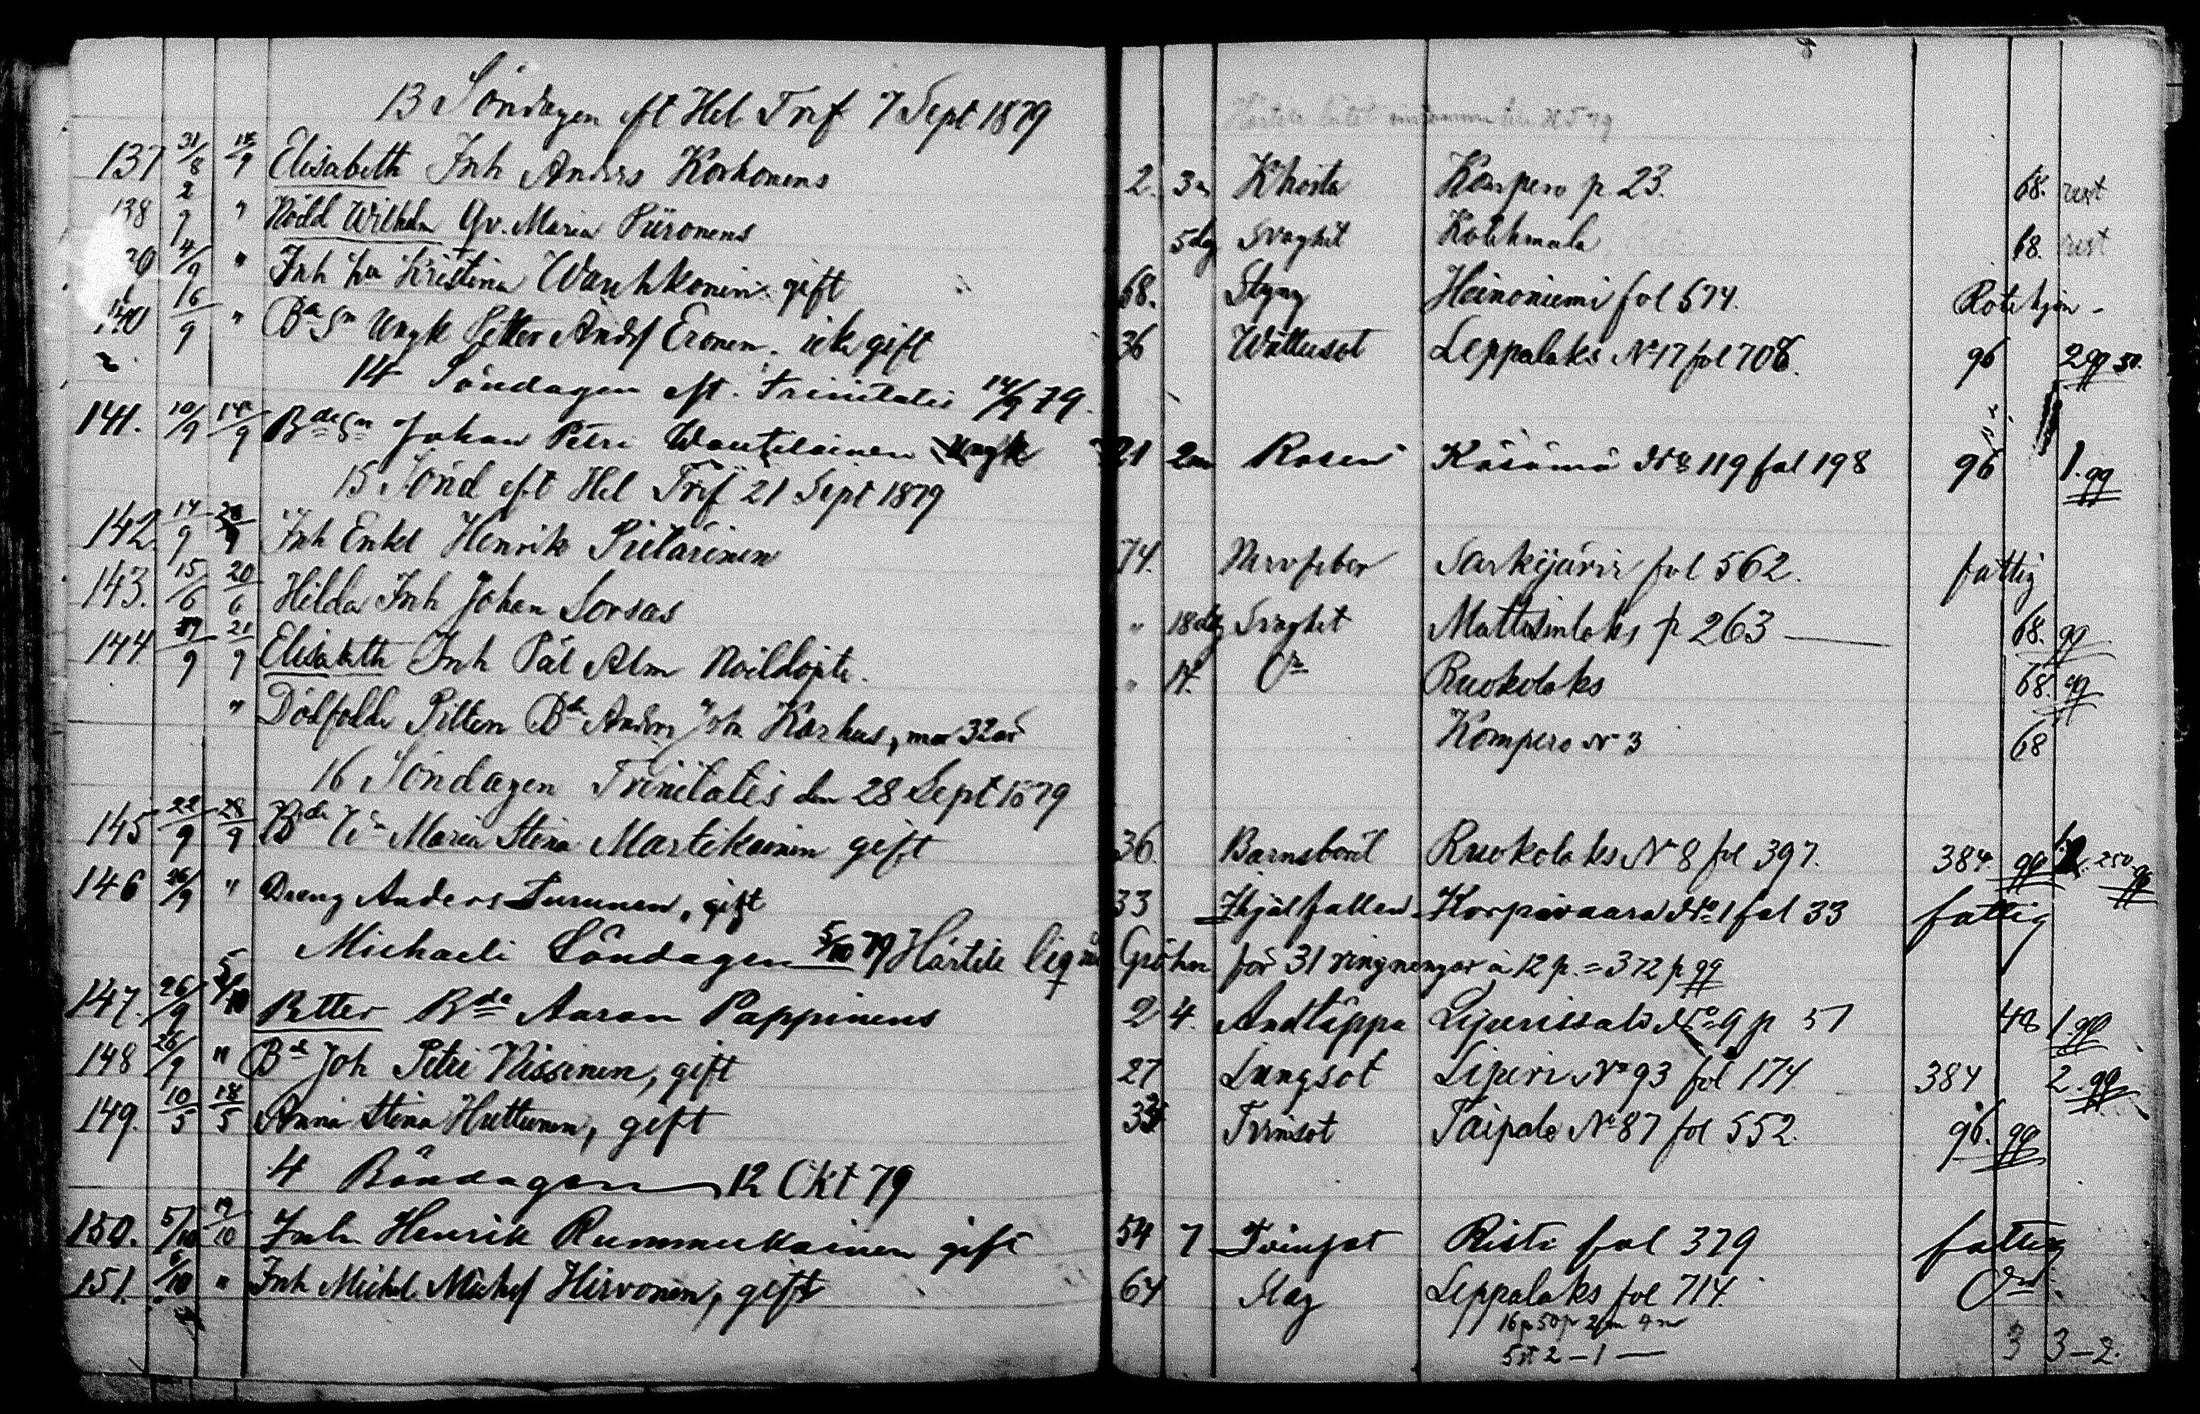 13 Söndagen eft Hel Tref 7 Sept 1879
137 31/8 14/9 Elisabeth Inh Anders Korhonens 2. 3 K'hosta Kompero p 23. 68. rest
138 2/9 " Noild Wilhelm Qv. Maria Piironens 5 dag Svaghet Kotkmala 68. rest
39 4/9 " Inh Kristina Wauhkonen gift 68. Styng Heinoniemi fol 574.
140 16/9 " Bd Sn Ungk Petter Andsf Eronen. icke gift 36 Wattusot Leppälaks No 17 fol 708. 96 2 qq 50.
14 Söndagen eft. Trinitatis 14/9 79.
141. 10/9 14/9 Bde Sn Johan Petri Wautilainen Ungk 21 2m Rosen Käsämä No 119 fol 198 96 1. qq
15 Sönd eft Hel Tref 21 Sept 1879
142. 14/9 Inh Enkl Henrik Pietarinen 74. Nervfeber Sarkijärvi fol 562. fattig
143. 15/6 20/6 Hilda Inh Johan Sorsas " 18 dag Svaghet Mattisinlaks p 263 — 68. qq
144 17/9 21/9 Elisabeth Inh Pål Alm Noildöpte. " 14. Do Ruokolaks 68. qq
" Dödfödde Pilten Bde Anders Joh Karhus, mor 32 år Kompero No 3 68
16 Söndagen Trinitatis den 28 Sept 1879
145 22/9 28/9 Bde Maria Stina Martikainen gift 36 Barnsbörd Ruokolaks No 8 fol 397. 384. qq 250 qq
146 26/9 " Dreng Anders Turunen, gift 33 Ihjälfallen Korpivaara No 1 fol 33 fattig
Michaeli Söndagen 5/10 79 Härtill Gröhn för 31 ringningar à 12 p. = 372 p qq
147. 26/9 5/10 Petter Bde Aaron Pappinens 2 4. Andtäppa Liperissalo No 9 p 51 48 1 qq
148 26/9 " Bd Joh Petri Nissinen, gift 27 Lungsot Liperi No 93 fol 174 384 2. qq
149. 10/5 18/5 Anna Stina Huttunen, gift Tvinsot Taipale No 87 fol 552. 96. qq
4 Böndagen 12 Okt 79
150. 5/10 /10 Inh Henrik Rummukainen gift 54 7 Tvinsot Risti fol 379 fattig
151. 6/10 " Inh Michel Michsf Hirvonen, gift 64 Slag Leppälaks fol 714. Do
16 p 50 p
5 st 2 – 1 — 3 3 – 2.